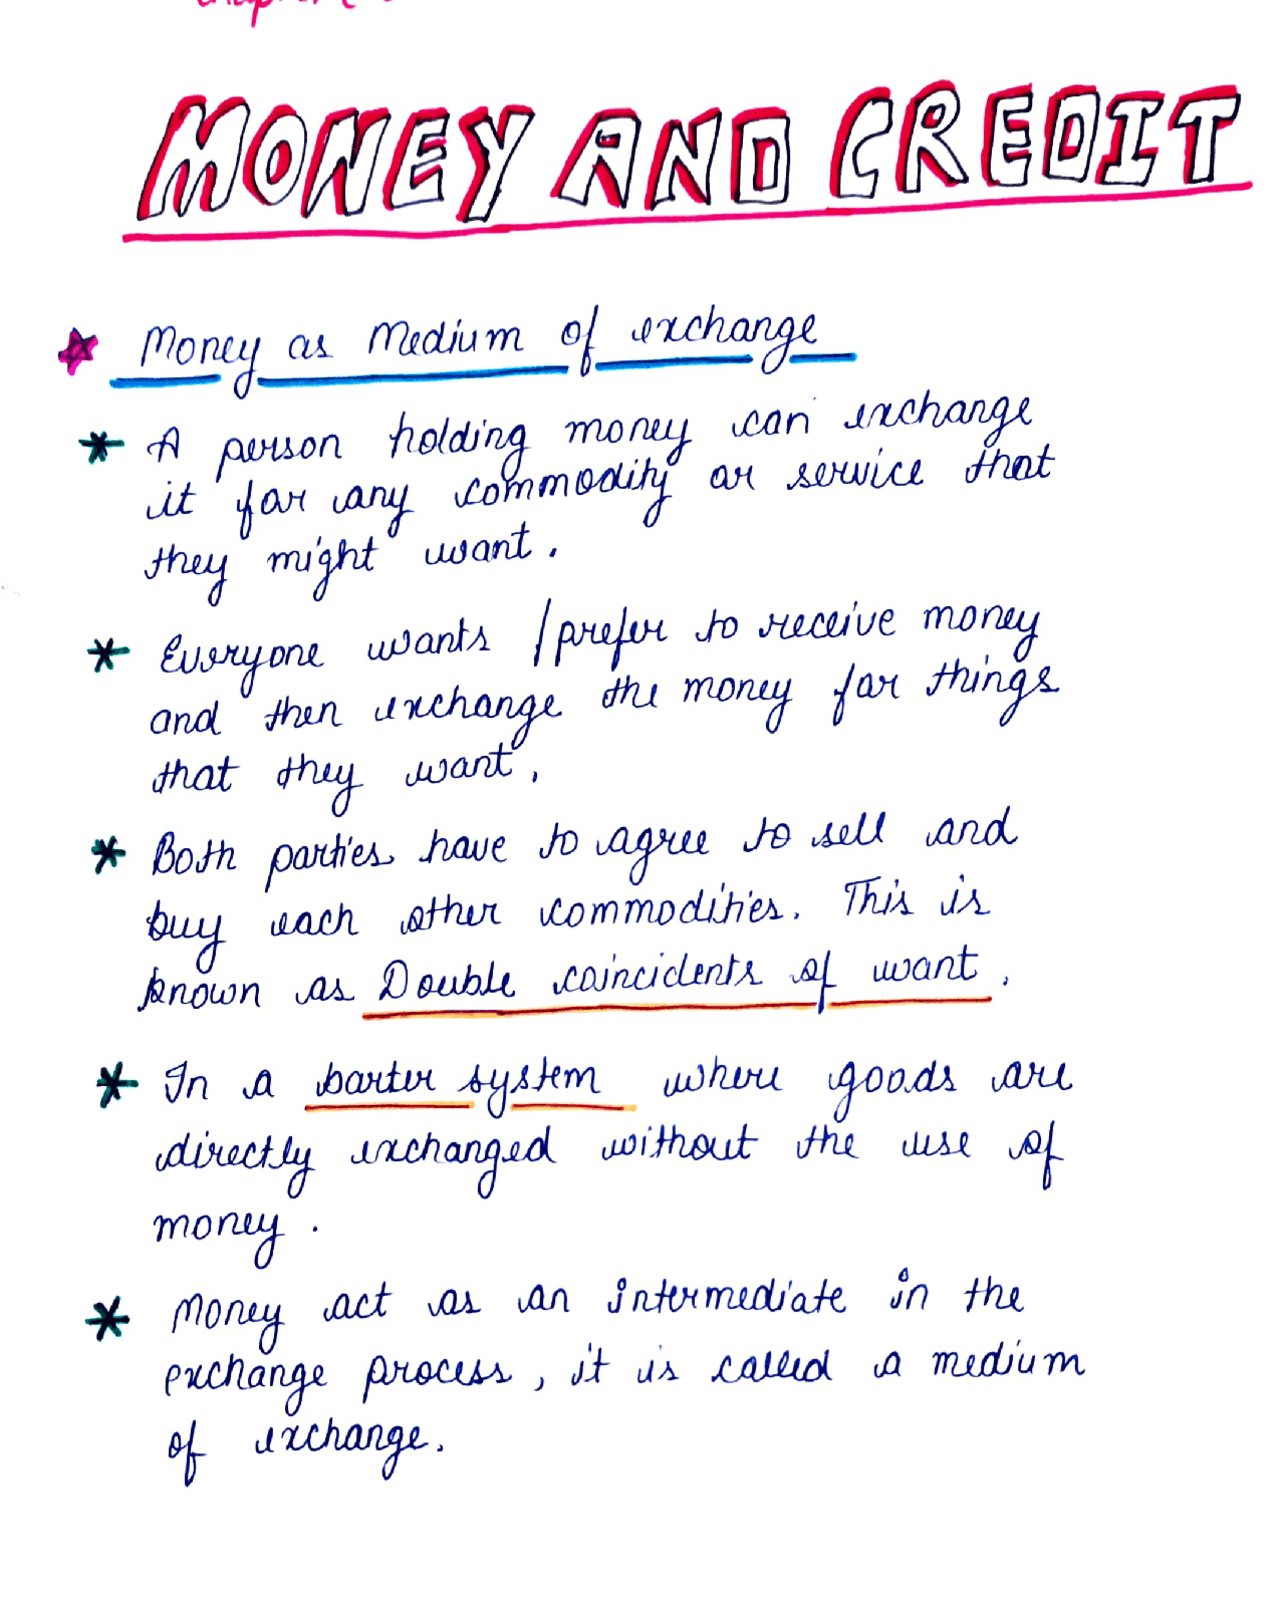 MONEY AND CREDIT
Money as Medium of exchange
* A person holding money can exchange
it for any commodity or service that
they might want.
* Everyone wants /prefer to receive money
and then exchange the money for things
that they want.
* Both parties have to agree to sell and
buy each other commodities. This is
known as Double coincidents of want.
* In a barter system where goods are
directly exchanged without the use of
money.
* Money act as an intermediate in the
exchange process, it is called a medium
of exchange.